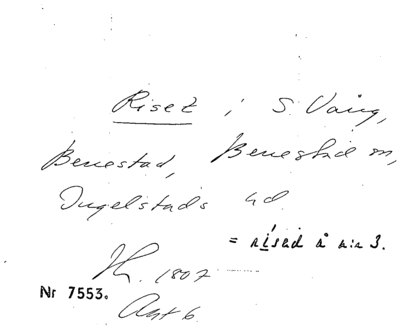 Riset i S. Vång,
Benestad, Benestad sn,
Ingelstads hd.
= rísad å n:r 3.
Th. 1807
Nr 7553.
Akt 6